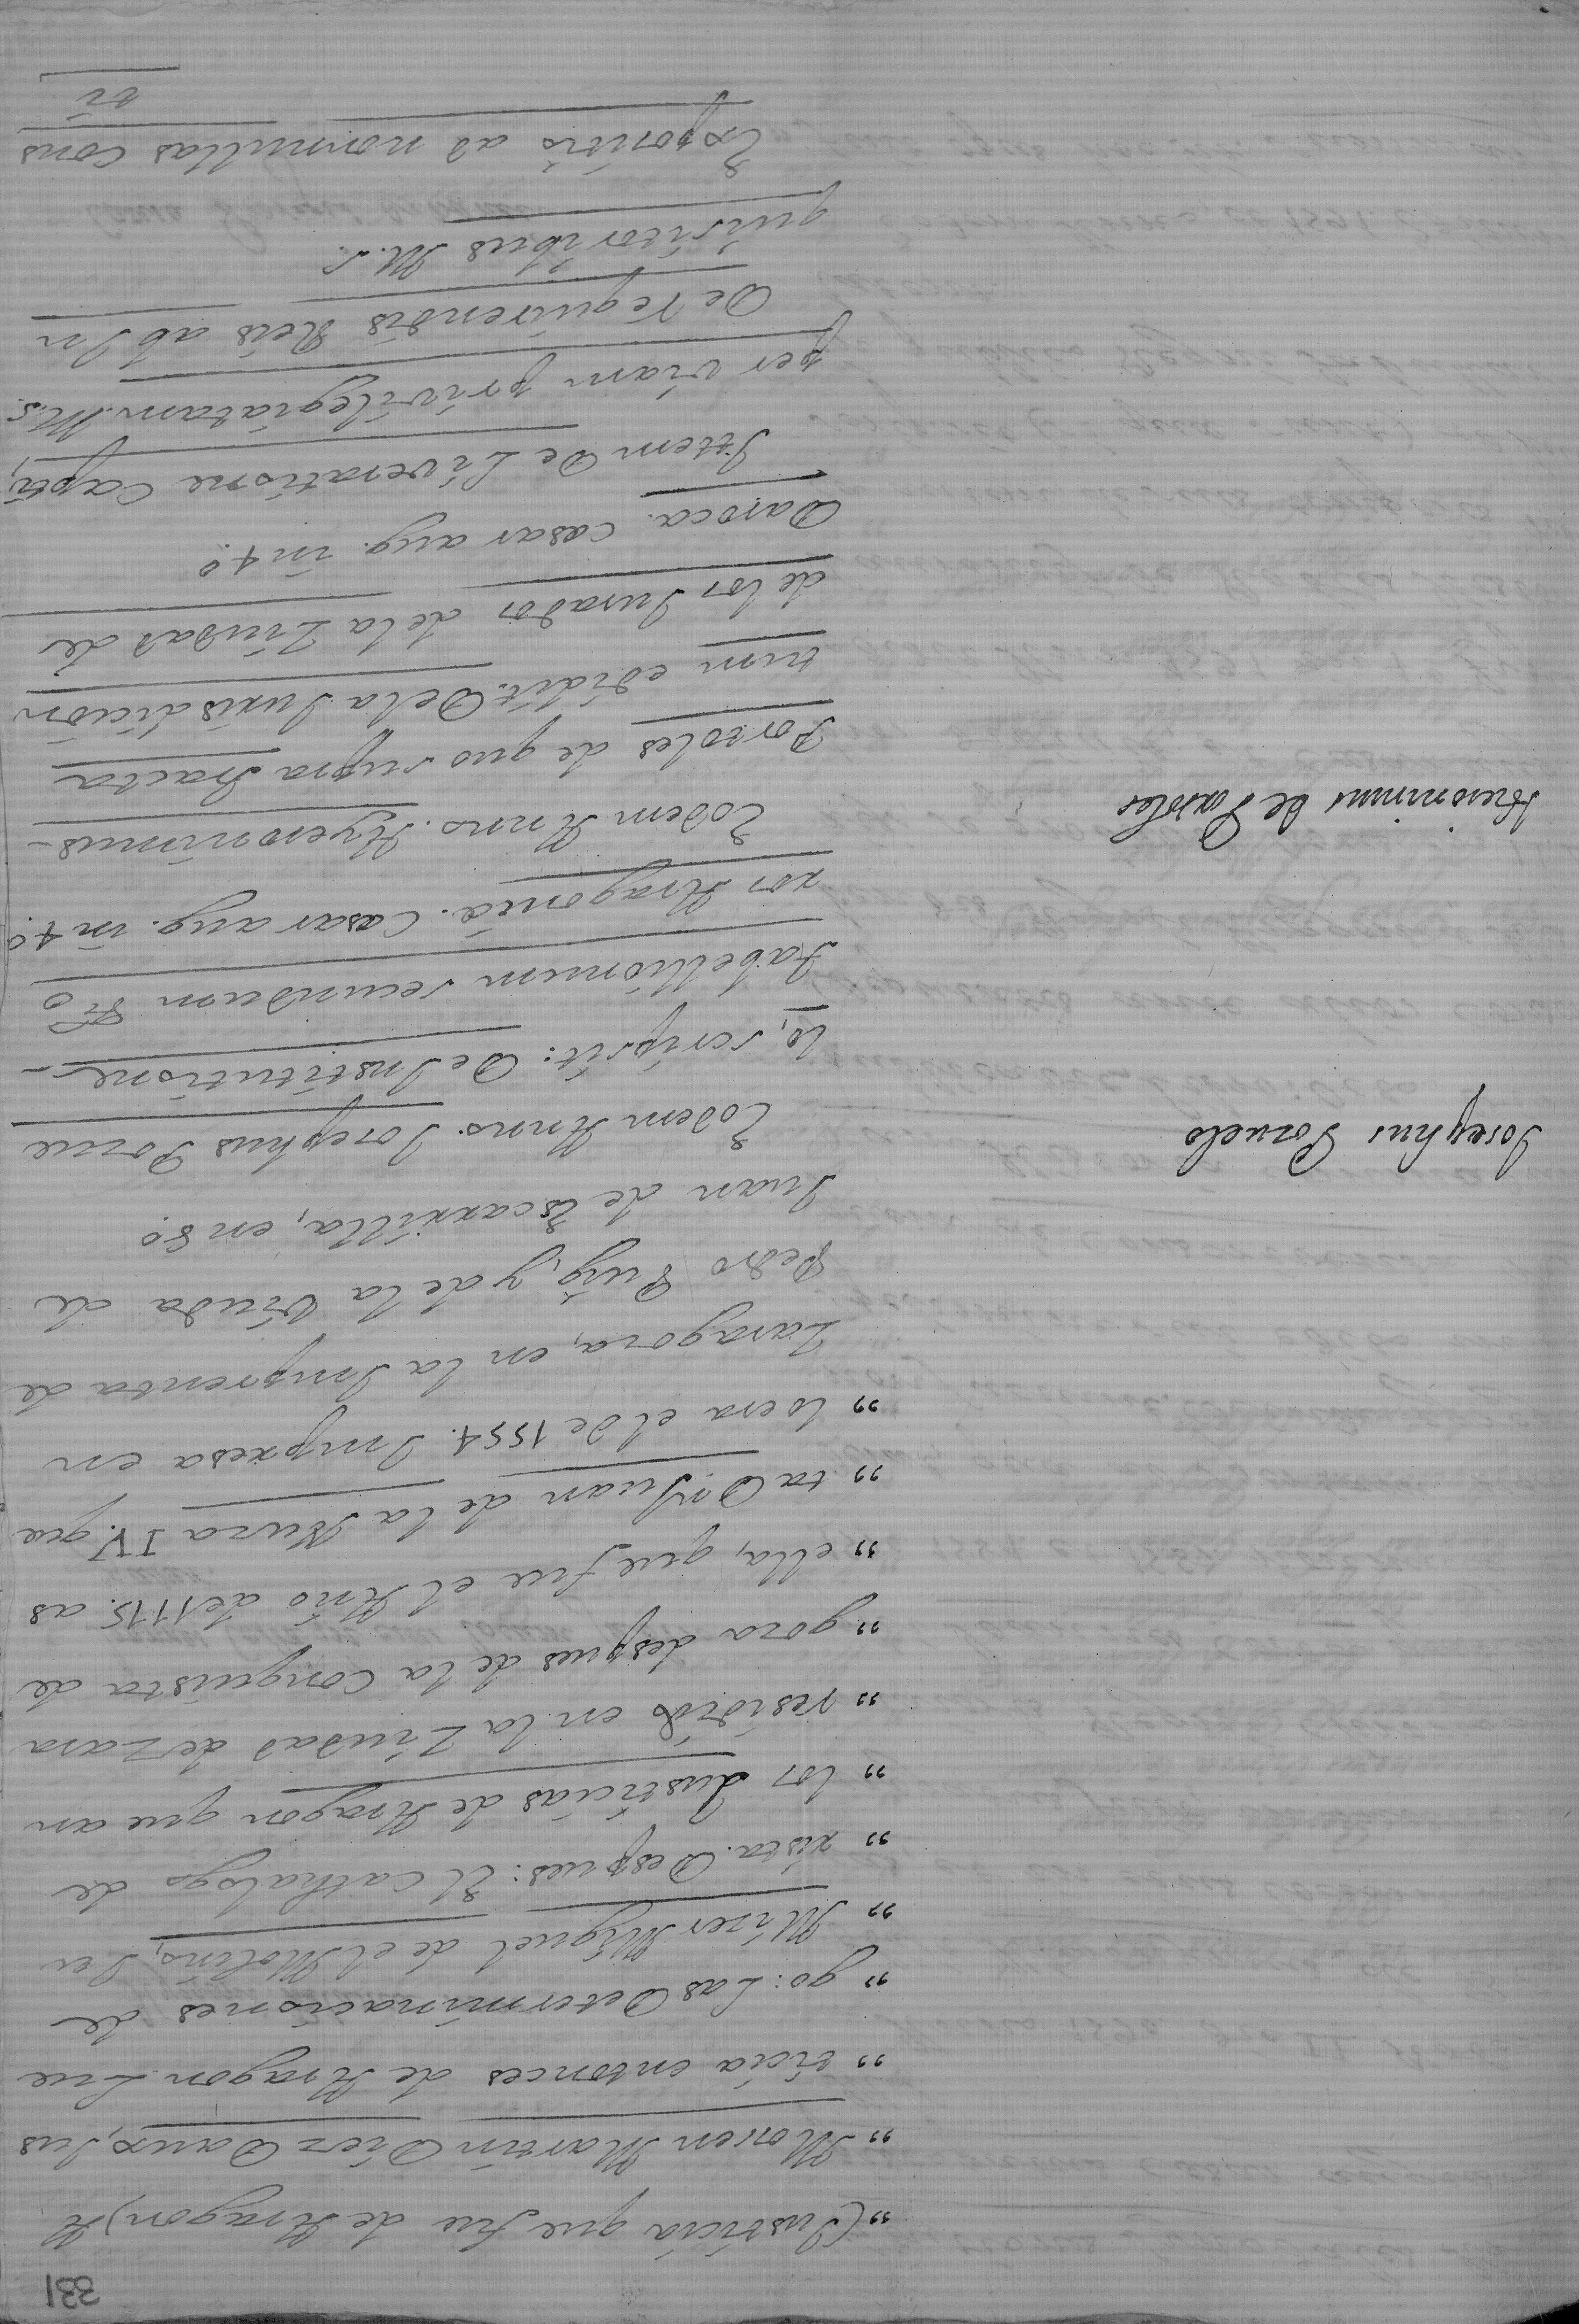 331
„ (Justicia que fue de Aragon) A
„ Mosen Martin Diez Daux, Jus
„ ticia entonces de Aragon. Lue
„ go: Las Determinaciones de
„ Mizer Miguel de el Molino, Ju
„ rista. Despues: El Cathalogo de
„ los Justicias de Aragon que an
„ residido en la Ziudad de Zara
„ goza despues de la Conquista de
„ ella, que fue el Año de 1115. as
„ ta Dn Juan de la Nuza IV. que
„ lo era el de 1554. Impresa en
Zaragoza, en la Imprenta de
Pedro Puig, y de la Viuda de
Juan de Escarrilla, en 8o.
Josephus Pozuelo
Eodem Anno. Josephus Pozue
lo, scripsit: De Institutione
Tabellionum secundum Fo
ros Aragoniæ. Cæsar aug. in 4o.
Hieronimus de Portoles
Eodem Anno. Hyeronimus
Portoles de quo supra Tracta
tum edidit: De la Jurisdicion
de los Jurados de la Ziudad de
Daroca. Cæsar aug. in 4o.
Ittem De Liveratione Capti,
per viam privilegiatam. M.S.
De requirendis Reis ab In
quisitoribus M.S.
Expositio ad nonnullas Cons
ti